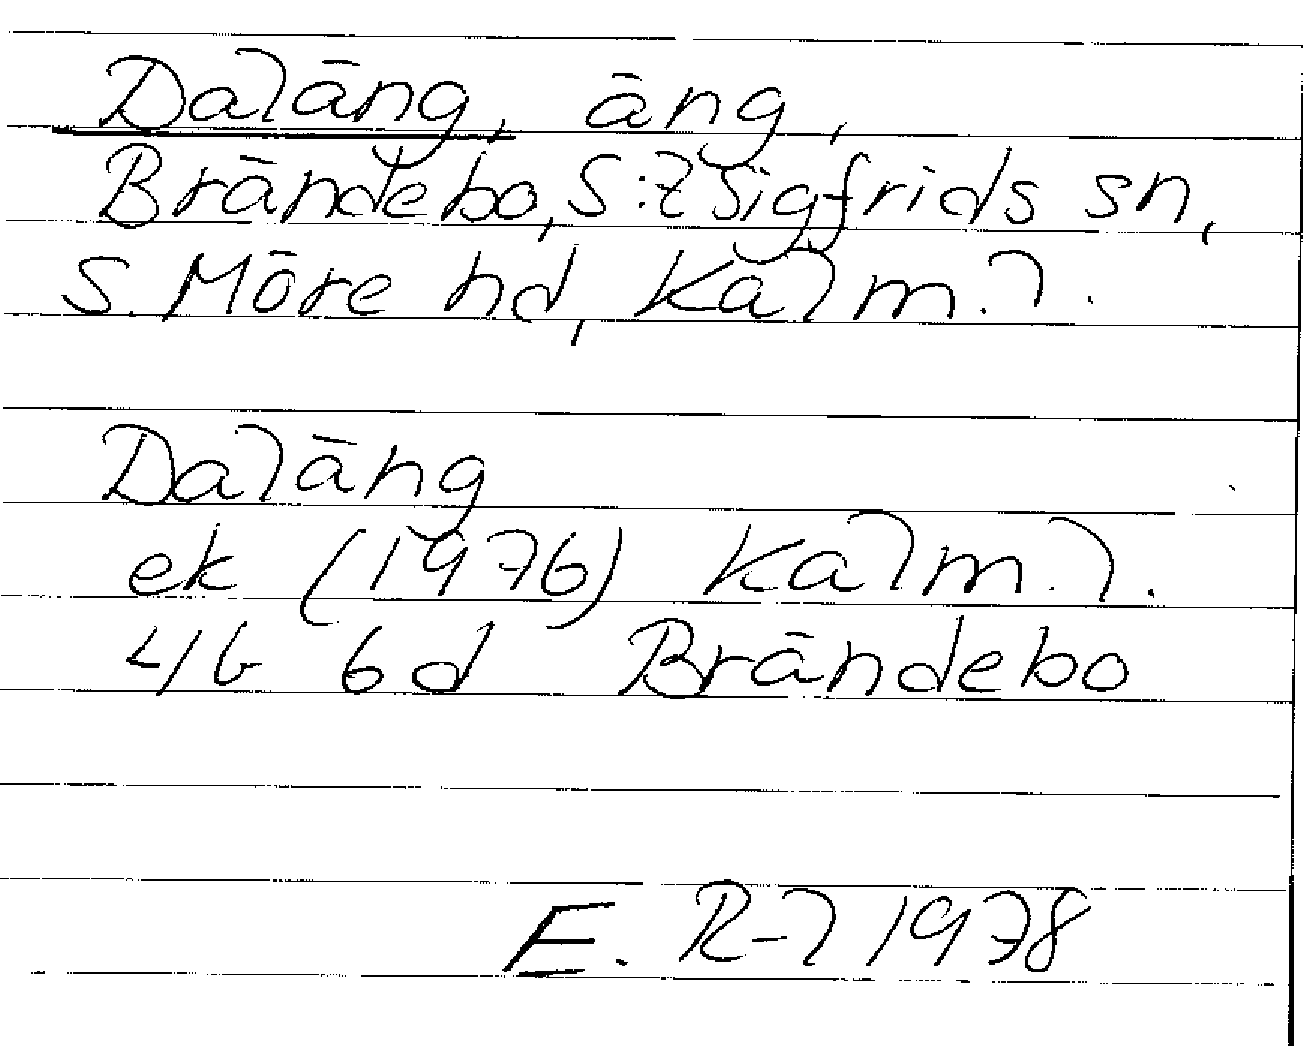 Daläng, äng,
Brändebo, S:t Sigfrids sn,
S. Möre hd, Kalm. l.
Daläng
ek (1976) Kalm. l.
4G 6d Brändebo
E. R-l 1978